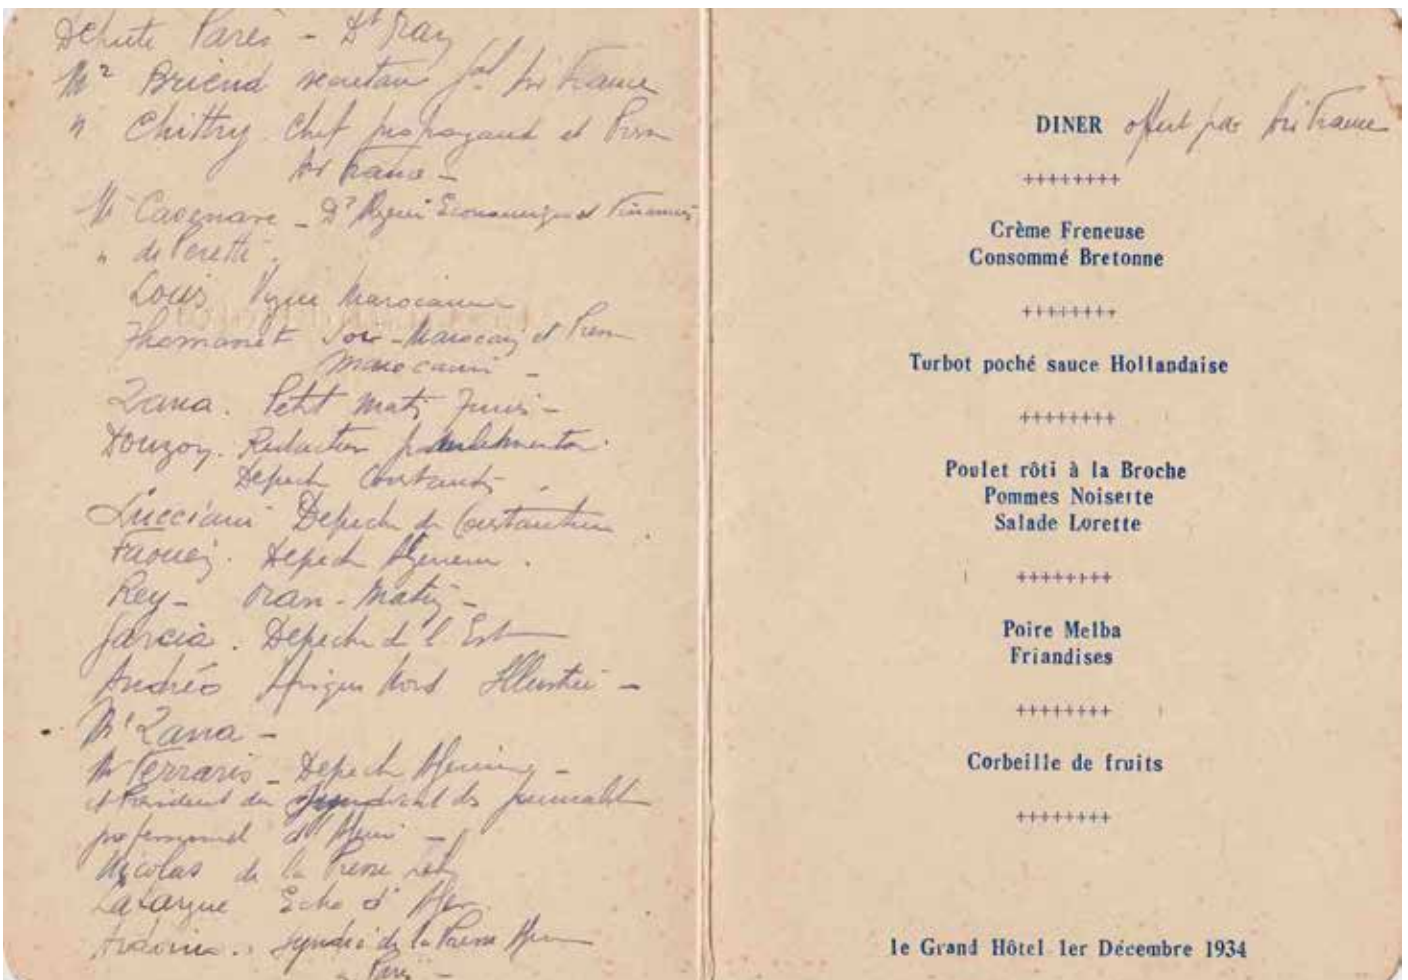 Député Paris - Dr Gay
Mr Briend secrétaire gal Air France
" Chittry Chef propagande et Presse
Air France -
Mr Cavenare - Dr Economique et Financier
" de Peretti.
Louis Vigie Marocaine
Thomanet Soir-Marocain et Presse
Marocaine -
Zana. Petit Matin Tunis -
Douzon. Rédaction parlementaire.
Dépêche Constantine.
Lucciani Depeche de Constantine.
Depech Algerienne.
Rey - Oran-Matin -
Garcia. Depeche de l'Est
Andréo Afrique Nord Illustrée -
Mr Zana -
Mr Ferraris - Depech Algerienne -
et Président du syndicat des journalistes
professionnel d'Algerie -
Nicolas de la Presse Libre
Lafargue Echo d'Alger
Syndic de la Presse
Paris -
DINER offert par Air France
++++++++
Crème Freneuse
Consommé Bretonne
++++++++
Turbot poché sauce Hollandaise
++++++++
Poulet rôti à la Broche
Pommes Noisette
Salade Lorette
++++++++
Poire Melba
Friandises
++++++++
Corbeille de fruits
++++++++
le Grand Hôtel 1er Décembre 1934